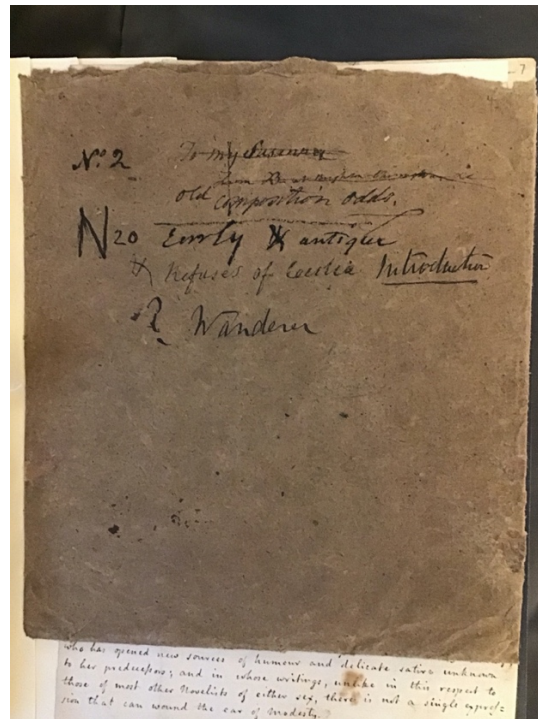 7
No. 2 To my
old composition odds.
N 20 Early X antique
X Refuses of Cecilia Introduction
? Wanderer
who has opened new sources of humour and delicate satire unknown
to her predecessors; and in whose writings, unlike in this respect to
those of most other Novelists of either sex, there is not a single expres-
sion that can wound the ear of modesty.